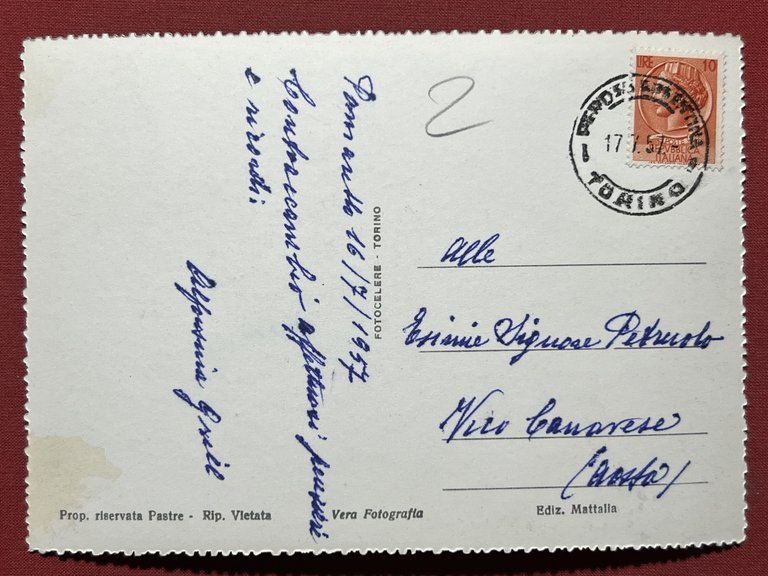 2
LIRE 10
ITALIANA
PEROSA ARGENTINA
17.7.57
TORINO
Pomaretto 16/7/1957
Contraccambio affettuosi pensieri
e ricordi
Alfonsina Grill
FOTOCELERE - TORINO
Alle
Esimie Signore Petruolo
Vico Canavese
(Aosta)
Prop. riservata Pastre - Rip. Vietata
Vera Fotografia
Ediz. Mattalia